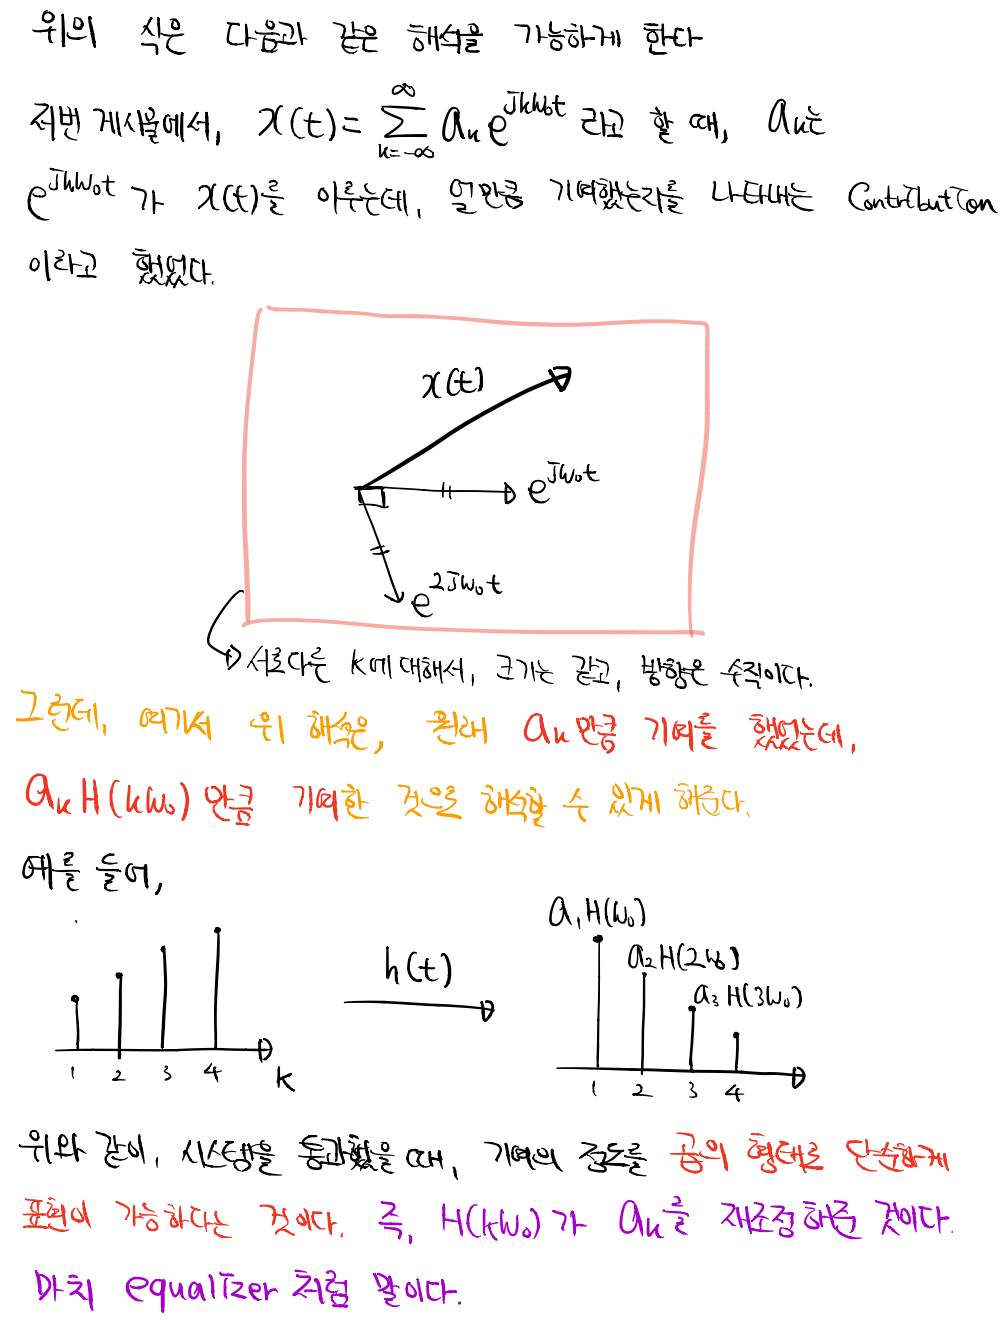 위의 식은 다음과 같은 해석을 가능하게 한다
저번 게시물에서, x(t) = ∑_{k=-∞}^{∞} a_k e^{jkω₀t} 라고 할 때, a_k는
e^{jkω₀t} 가 x(t)를 이루는데, 얼만큼 기여했는지를 나타내는 Contribution
이라고 했었다.
x(t)
e^{jω₀t}
e^{2jω₀t}
서로다른 k에 대해서, 크기는 같고, 방향은 수직이다.
그런데, 여기서 위 해석은, 원래 a_k만큼 기여를 했었는데,
a_k H(kω₀)만큼 기여한 것으로 해석할 수 있게 해준다.
예를 들어,
a₁H(ω₀)
h(t)
a₂H(2ω₀)
a₃H(3ω₀)
1 2 3 4 k
1 2 3 4
위와 같이, 시스템을 통과했을 때, 기여의 정도를 곱의 형태로 단순하게
표현이 가능하다는 것이다. 즉, H(kω₀)가 a_k를 재조정해준 것이다.
마치 equalizer처럼 말이다.